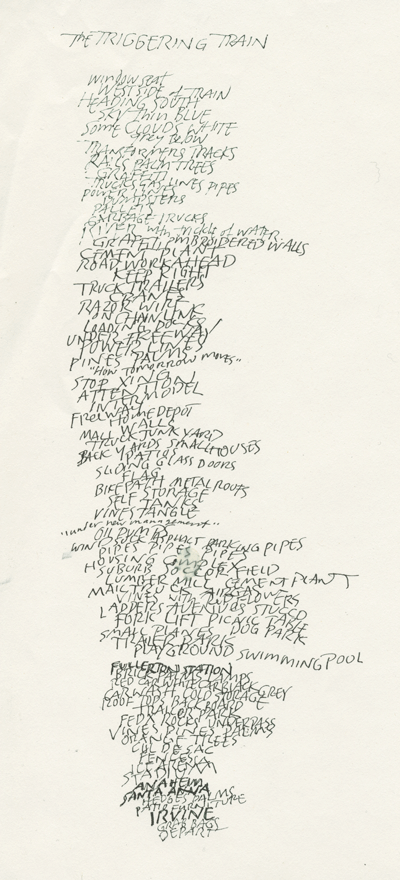 The TRIGGERING TRAIN
window seat
WESTSIDE of TRAIN
HEADING SOUTH
SKY thin BLUE
Some CLOUDS WHITE
grey below
TRANSFORMERS TRACKS
RAILS PALM TREES
GRAFFETI
TRUCKS GAS LINES PIPES
POWER LINES
DUMPSTERS
PALLETS
GARBAGE TRUCKS
RIVER with trickle of WATER
GRAFFITI EMBROIDERED WALLS
CEMENT PLANT
ROAD WORK AHEAD
KEEP RIGHT
TRUCK TRAILERS
CRANES
RAZOR WIRE
CHAIN LINK
LOADING DOCKS
UNDER FREEWAY
POWER LINES
PINES PALMS
"HOW TOMORROW MOVES"
STOP XING
ATTENTION
INTERMODEL
FIREWALL
HOME DEPOT
MALL WALLS
TRUCK JUNK YARD
BACK YARDS SMALL HOUSES
PATIOS
SLIDING GLASS DOORS
FLAG
BIKE PATH METAL ROOFS
SELF STORAGE
TANKS
VINES TANGLE
"under new management"
OIL DUMPS
WINDSOCK ASPHALT PARKING PIPES
PIPES PIPES PIPES
HOUSING COMPLEX
SUBURB FIELD
LUMBER MILL CEMENT PLANT
MAIL TRUCK
VINES with FLOWERS
LADDERS AVENUES STUCCO
FORK LIFT PICNIC TABLE
SMALL PLANES DOG PARK
TRAILER PARK
PLAYGROUND SWIMMING POOL
FULLERTON STATION
BRICK PALMS
RED CAR WHITE CAR BLACK
CAR WASH COLD STORAGE GREY
ROOF TOPS
FEDX ROCKS UNDERPASS
VINES PINES PALMS
ORANGE TREES
CUL DE SAC
STADIUM
ANAHEIM
SANTA ANNA
HEDGES PALMS
PATIO FURNITURE
IRVINE
GRAB BAGS
DEPART